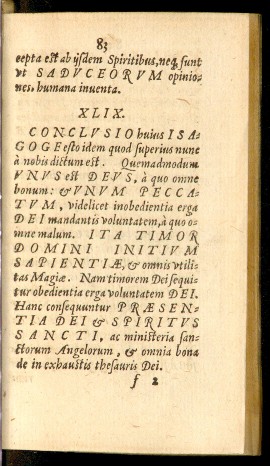 83
cepta est ab ijsdem Spiritibus, neq; sunt
vt SADVCEORVM opinio-
nes, humana inventa.
XLIX.
CONCLVSIO huius ISA-
GOGE esto idem quod superius nunc
à nobis dictum est. Quemadmodum
VNVS est DEVS, à quo omne
bonum: & VNVM PECCA-
TVM, videlicet inobedientia erga
DEI mandantis voluntatem, à quo o-
mne malum. ITA TIMOR
DOMINI INITIVM
SAPIENTIÆ, & omnis vtili-
tas Magiæ. Nam timorem Dei sequi-
tur obedientia erga voluntatem DEI.
Hanc consequuntur PRÆSEN-
TIA DEI & SPIRITVS
SANCTI, ac ministeria san-
ctorum Angelorum, & omnia bona
de in exhaustis thesauris Dei.
f 2